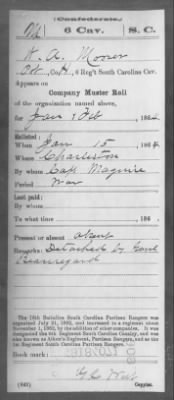 (Confederate.)
6 Cav. S. C.
Co. , 6 Reg't South Carolina Cav.
Appears on
Company Muster Roll
of the organization named above,
for Jan & Feb , 186
Enlisted:
When Jan 15 , 186
Where Charleston
By whom Capt Maguire
Period War
Last paid:
By whom
To what time , 186 .
Present or absent Absent
Remarks: Detached by Genl
Beauregard
The 16th Battalion South Carolina Partisan Rangers was
organized July 21, 1862, and increased to a regiment about
November 1, 1862, by the addition of other companies. It was
designated the 6th Regiment South Carolina Cavalry, and was
also known as Aiken's Regiment, Partisan Rangers, and as the
1st Regiment South Carolina Partisan Rangers.
Book mark:
(642) Copyist.